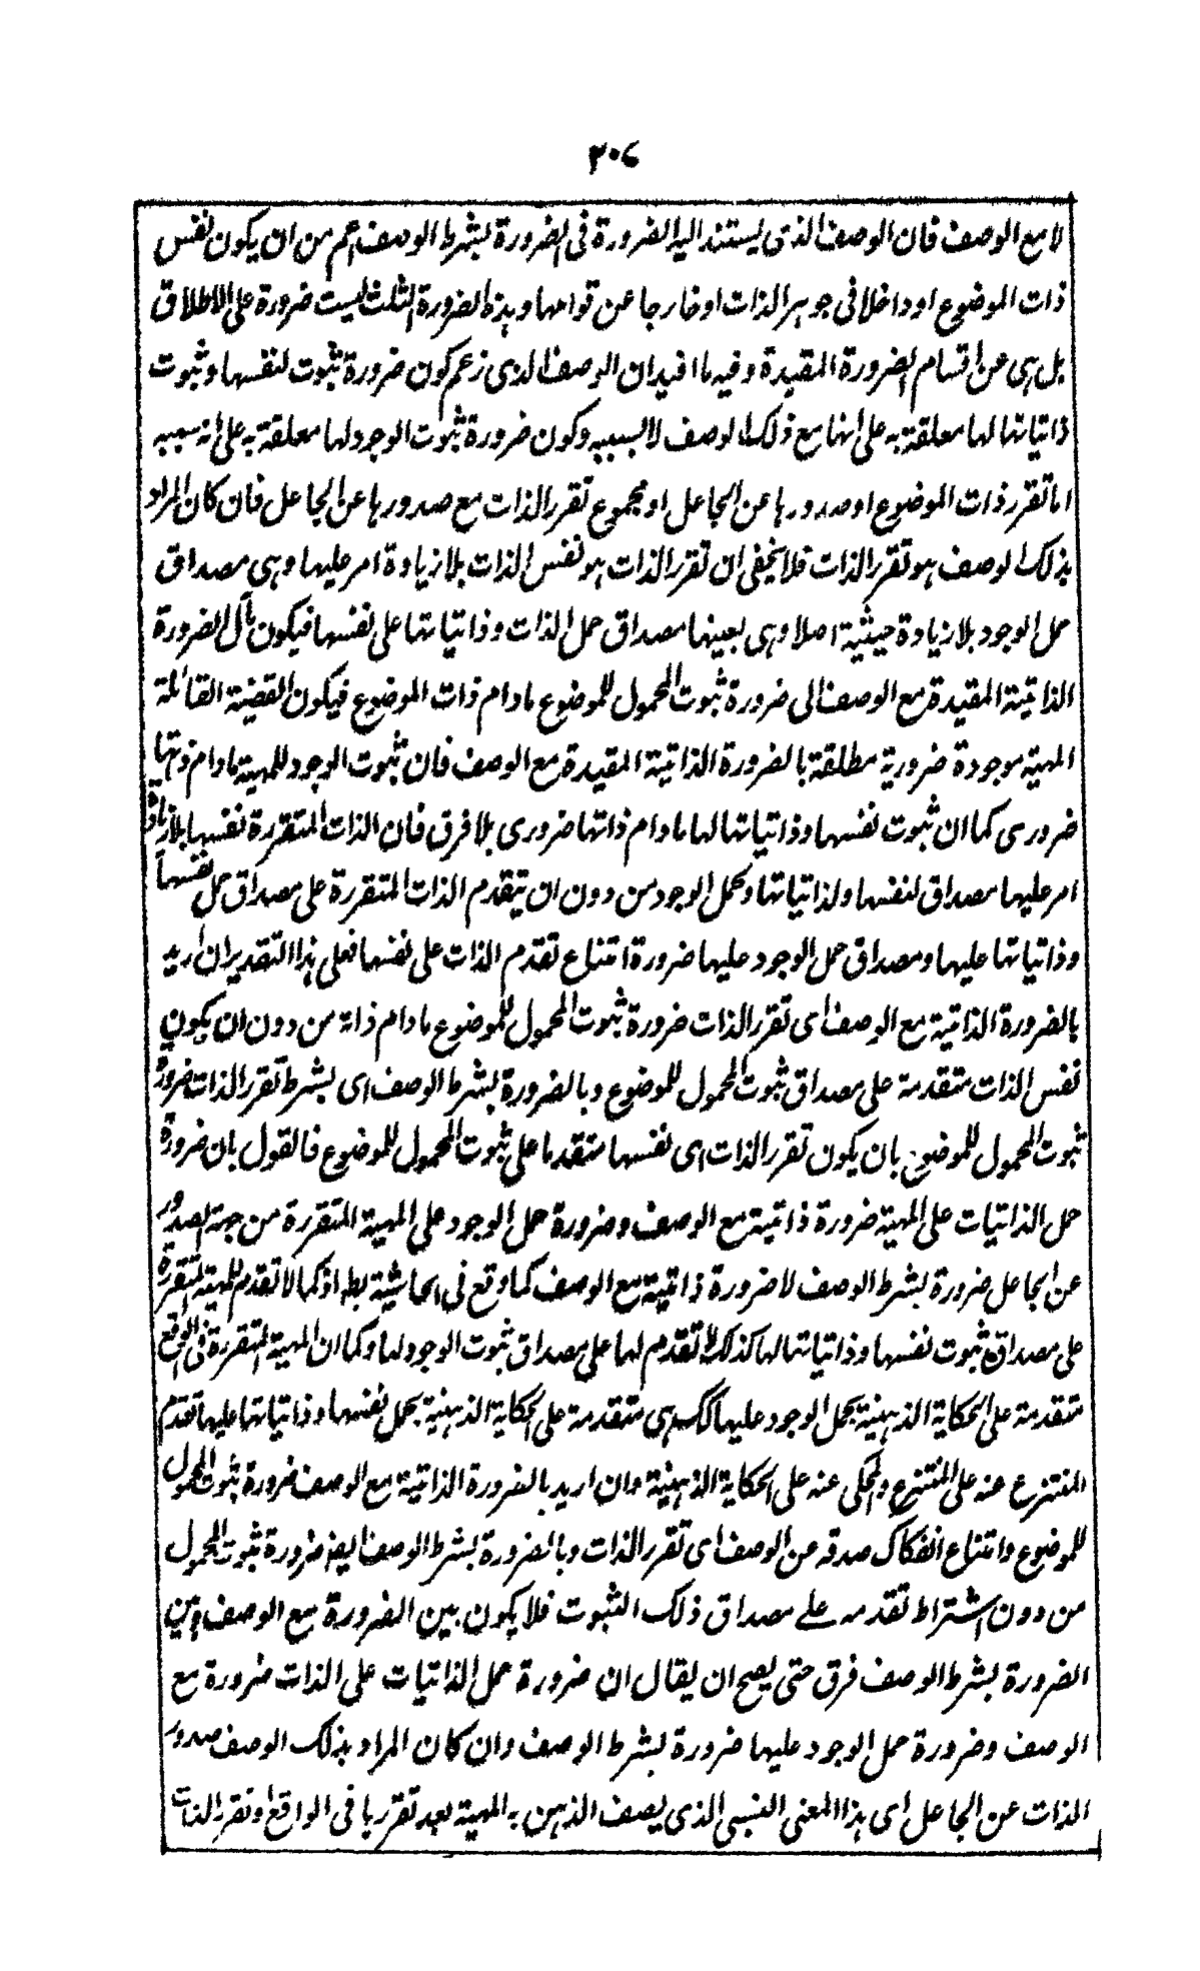 ٢٠٦
لا مع الوصف فان الوصف الذى يستند اليه الضرورة فى الضرورة بشرط الوصف اعم من ان يكون نفس
ذات الموضوع او داخلا فى جوهر الذات او خارجا عن قوامها وهذه الضرورة الثلث ليست ضرورة على الاطلاق
بل هى من اقسام الضرورة المقيدة وفيه ما افيد ان الوصف الذى زعم كون ضرورة ثبوت لنفسها وثبوت
ذاتياتها لها معلقة به على انها مع ذلك الوصف لا بسببه وكون ضرورة ثبوت الوجود لها معلقة به على انه سببه
اما تقرر ذات الموضوع او صدورها عن الجاعل او مجموع تقرر الذات مع صدورها عن الجاعل فان كان المراد
بذلك الوصف هو تقرر الذات فلا يخفى ان تقرر الذات هو نفس الذات بلا زيادة امر عليها وهى مصداق
حمل الوجود بلا زيادة حيثية اصلا وهى بعينها مصداق حمل الذات وذاتياتها على نفسها فيكون مآل الضرورة
الذاتية المقيدة مع الوصف الى ضرورة ثبوت المحمول للموضوع مادام ذات الموضوع فيكون القضية القائلة
المهية موجودة ضرورية مطلقة بالضرورة الذاتية المقيدة مع الوصف فان ثبوت الوجود للمهية مادام ذاتها
ضرورى كما ان ثبوت نفسها وذاتياتها لها مادام ذاتها ضرورى بلا فرق فان الذات المتقررة نفسها بلا زيادة
امر عليها مصداق لنفسها ولذاتياتها ولحمل الوجود من دون ان يتقدم الذات المتقررة على مصداق حمل نفسها
وذاتياتها عليها ومصداق حمل الوجود عليها ضرورة امتناع تقدم الذات على نفسها فعلى هذا التقدير ان اريد
بالضرورة الذاتية مع الوصف اى تقرر الذات ضرورة ثبوت المحمول للموضوع مادام ذاته من دون ان يكون
نفس الذات متقدمة على مصداق ثبوت المحمول للموضوع وبالضرورة بشرط الوصف اى بشرط تقرر الذات ضرورة
ثبوت المحمول للموضوع بان يكون تقرر الذات اى نفسها متقدما على ثبوت المحمول للموضوع فالقول بان ضرورة
حمل الذاتيات على المهية ضرورة ذاتية مع الوصف وضرورة حمل الوجود على المهية المتقررة من جهة الصدور
عن الجاعل ضرورة بشرط الوصف لا ضرورة ذاتية مع الوصف كما وقع فى الحاشية بط اذ كما لا تقدم للمهية المتقررة
على مصداق ثبوت نفسها وذاتياتها لها كذلك لا تقدم لها على مصداق ثبوت الوجود لها وكما ان المهية المتقررة فى الواقع
متقدمة على الحكاية الذهنية بحمل الوجود عليها كك هى متقدمة على الحكاية الذهنية بحمل نفسها وذاتياتها عليها تقدم
المنتزع عنه على المنتزع والمحكى عنه على الحكاية الذهنية وان اريد بالضرورة الذاتية مع الوصف ضرورة ثبوت المحمول
للموضوع وامتناع انفكاك صدقه عن الوصف اى تقرر الذات وبالضرورة بشرط الوصف ايضا ضرورة ثبوت المحمول
من دون اشتراط تقدمه على مصداق ذلك الثبوت فلا يكون بين الضرورة مع الوصف وبين
الضرورة بشرط الوصف فرق حتى يصح ان يقال ان ضرورة حمل الذاتيات على الذات ضرورة مع
الوصف وضرورة حمل الوجود عليها ضرورة بشرط الوصف وان كان المراد بذلك الوصف صدور
الذات عن الجاعل اى هذا المعنى النسبى الذى يصف الذهن به المهية بعد تقررها فى الواقع او تقرر الذات